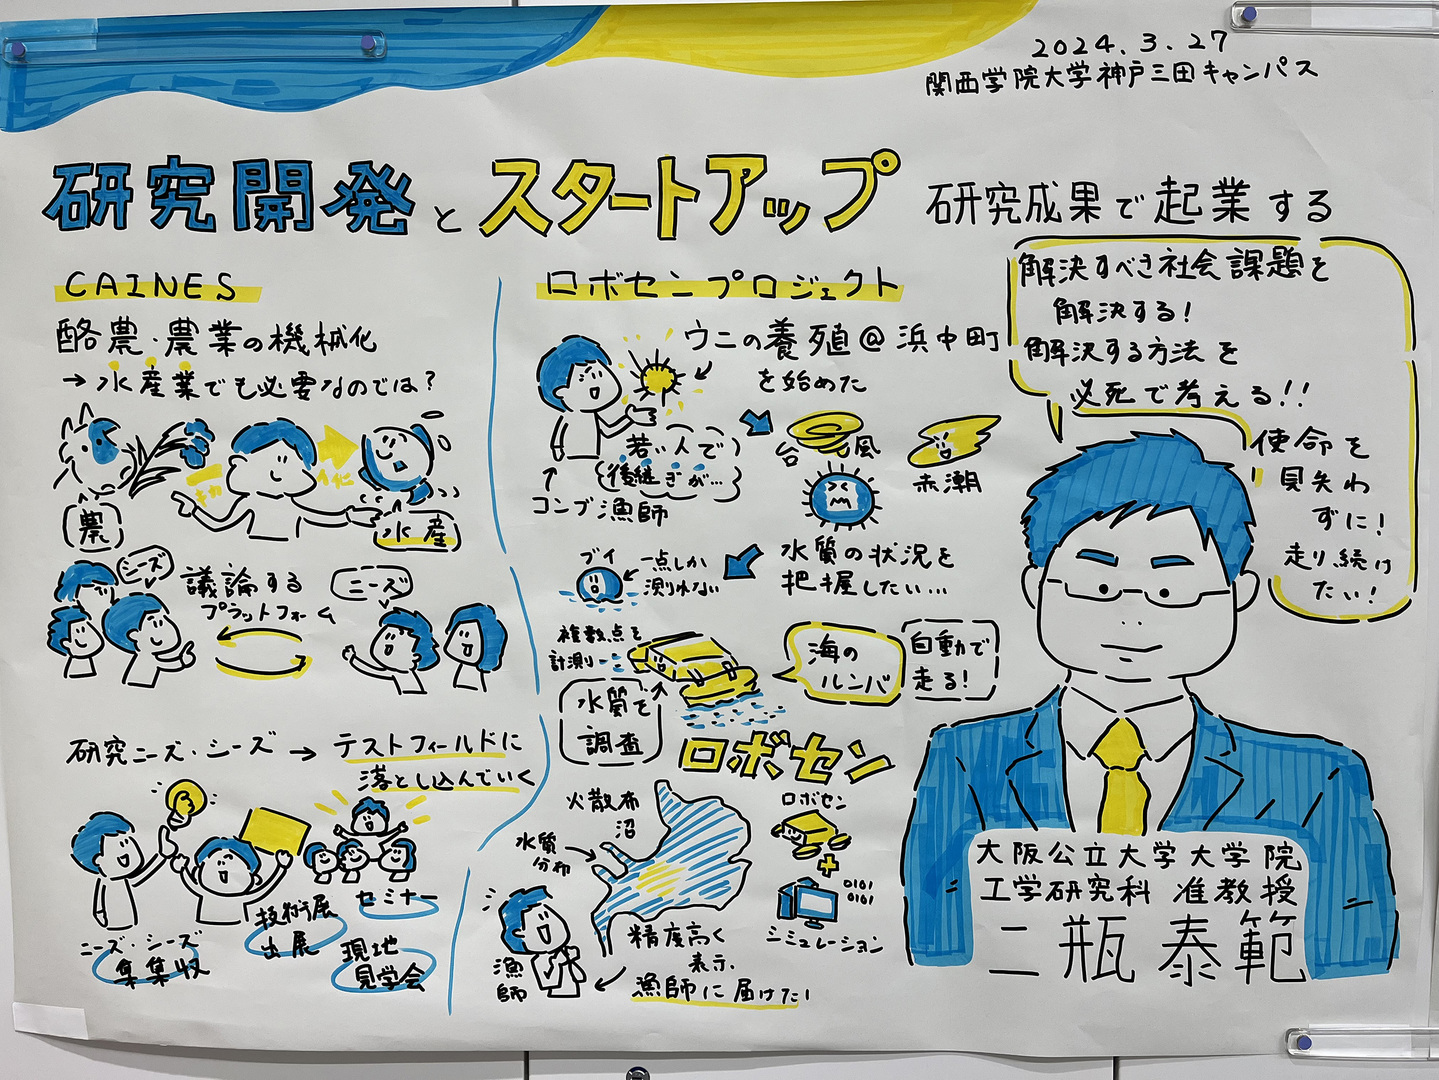 2024.3.27
関西学院大学神戸三田キャンパス
研究開発とスタートアップ
研究成果で起業する
CAINES
酪農・農業の機械化
→水産業でも必要なのでは?
農
水産
シーズ
議論する
プラットフォーム
ニーズ
研究ニーズ・シーズ→テストフィールドに
落とし込んでいく
ニーズ・シーズ
集集収
技術展
出展
セミナー
現地
見学会
ロボセンプロジェクト
ウニの養殖@浜中町
を始めた
若い人で
後継ぎが…
コンブ漁師
台風
赤潮
水質の状況を
把握したい…
ブイ
一点しか
測れない
複数点を
計測
水質を
調査
海の
ルンバ
自動で
走る!
ロボセン
火散布
沼
水質
分布
漁師
精度高く
表示、
漁師に届けたい
ロボセン
+
0101
0101
シミュレーション
解決すべき社会課題を
解決する!
解決する方法を
必死で考える!!
使命を
見失わ
ずに!
走り続け
たい!
大阪公立大学大学院
工学研究科 准教授
二瓶泰範